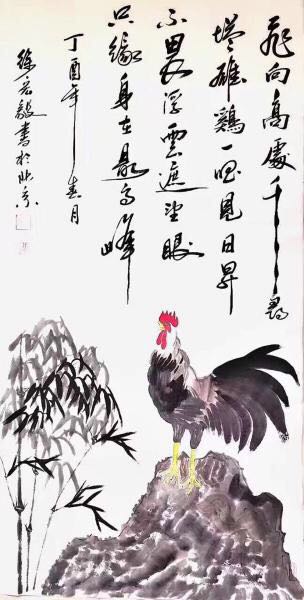 飛向高處千尋
塔雄鷄一唱見日昇
不畏浮雲遮望眼
只緣身在最高峰
丁酉年春月
徐宏毅書於北京